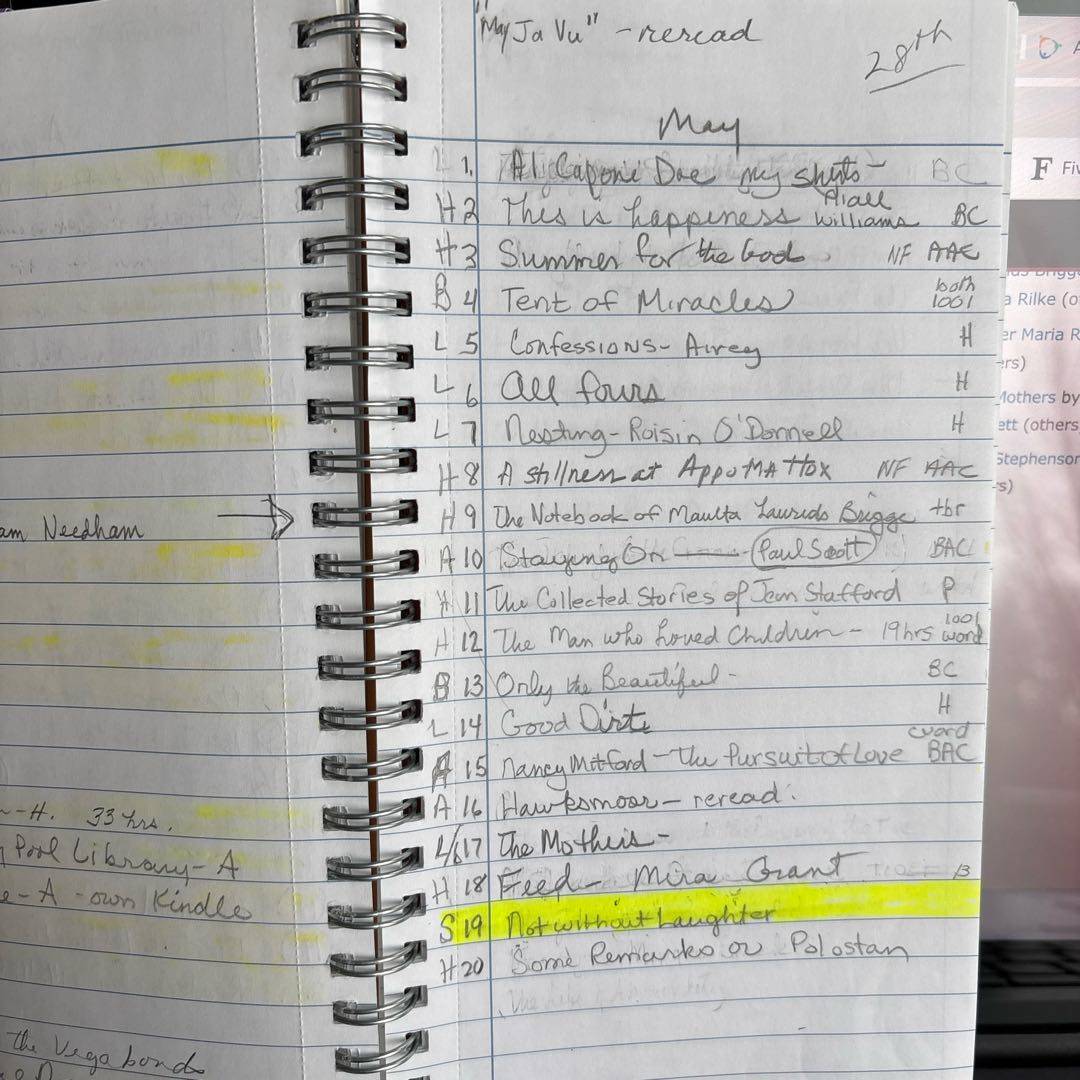 "May Ja Vu" - reread
28th
May
L 1. Al Capone Doe my shirts - BC
H 2 This is happiness Niall Williams BC
H 3 Summer for the Gods NF AAC
B 4 Tent of Miracles both 1001
L 5 Confessions - Airey H
L 6 All fours H
L 7 Nesting - Roisin O'Donnell H
H 8 A stillness at Appomattox NF AAC
am Needham → H 9 The Notebook of Maulta Laurids Brigge tbr
A 10 Staying On - Paul Scott BAC
H 11 The Collected Stories of Jean Stafford P
H 12 The Man who Loved Children - 19hrs 1001 word
B 13 Only the Beautiful - BC
L 14 Good Dirt H
A 15 Nancy Mitford - The Pursuit of Love word BAC
A 16 Hawksmoor - reread.
L/ 17 The Mothers -
H 18 Feed - Mira Grant B
S 19 Not without Laughter
H 20 Some Remarks or Polostan
-H. 33 hrs.
Pool Library - A
e - A - own Kindle
the Vegabonds
F Fiv
a Rilke (o
er Maria R
ers)
Mothers by
ett (others
Stephenson
s)